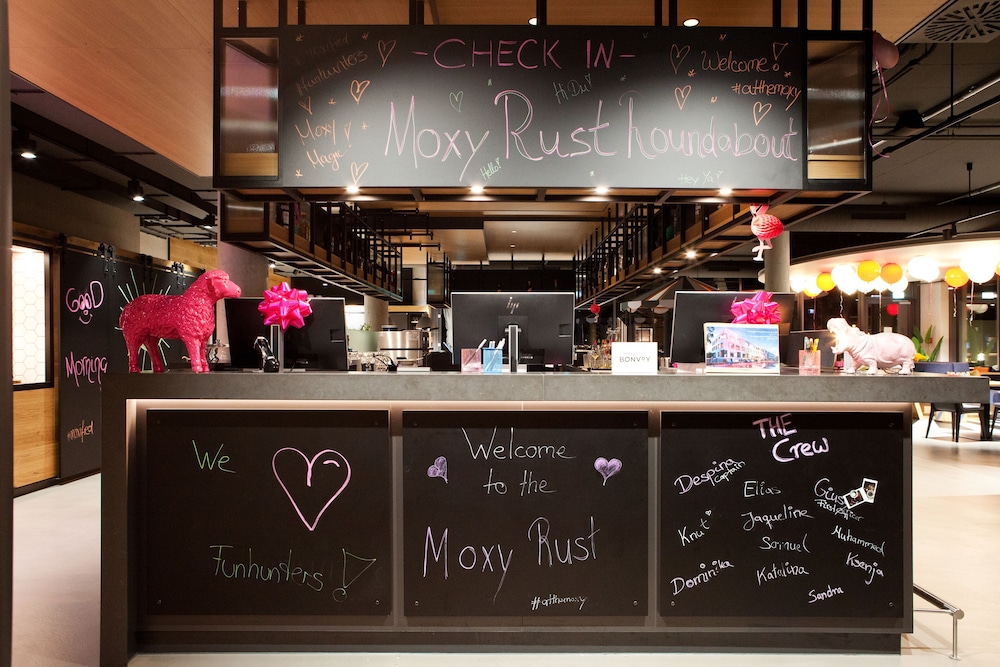 -CHECK IN-
#funhunters
Hi Du!
Welcome!
#atthemoxy
Moxy
Magic!
Moxy Rust roundabout
Hello!
Hey Ya!
GooD
Morning
BONVOY
We
Funhunters!
Welcome
to the
Moxy Rust
#atthemoxy
THE
Crew
Despina
Captain
Elias
Knut
Jaqueline
Samuel
Muhammad
Dominika
Katalina
Ksenja
Sandra